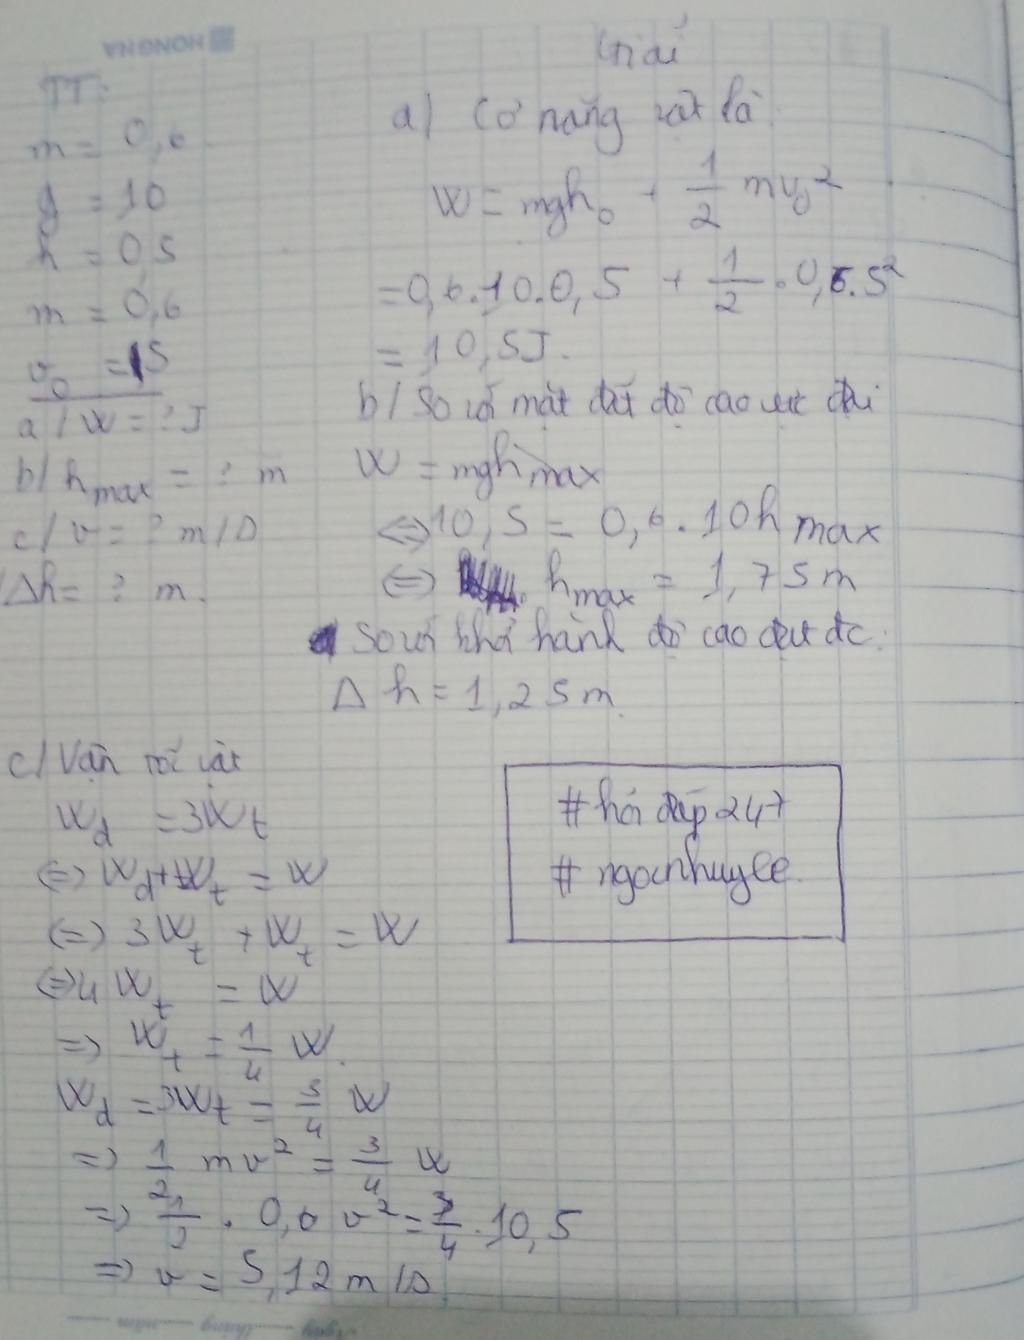 HONG HA
TT:
m = 0,6
g = 10
h = 0,5
m = 0,6
v₀ = 15
a/ W = ? J
b/ h max = ? m
c/ v = ? m/s
Δh = ? m.
Giải
a/ Cơ năng vật là
W = mgh₀ + 1/2 mv₀²
= 0,6.10.0,5 + 1/2 . 0,6.5²
= 10,5J.
b/ So với mặt đất độ cao cực đại
W = mgh max
⇔ 10,5 = 0,6.10h max
⇔ h max = 1,75m
So với khởi hành độ cao đạt đc:
Δh = 1,25m.
c/ Vận tốc vật
Wd = 3Wt
⇔ Wd + Wt = W
⇔ 3Wt + Wt = W
⇔ 4Wt = W
⇒ Wt = 1/4 W.
Wd = 3Wt = 3/4 W
⇒ 1/2 mv² = 3/4 W
⇒ 1/2 . 0,6 v² = 3/4 . 10,5
⇒ v = 5,12 m/s
# hỏi đáp 247
# ngocnhuyee
Ngày tháng năm